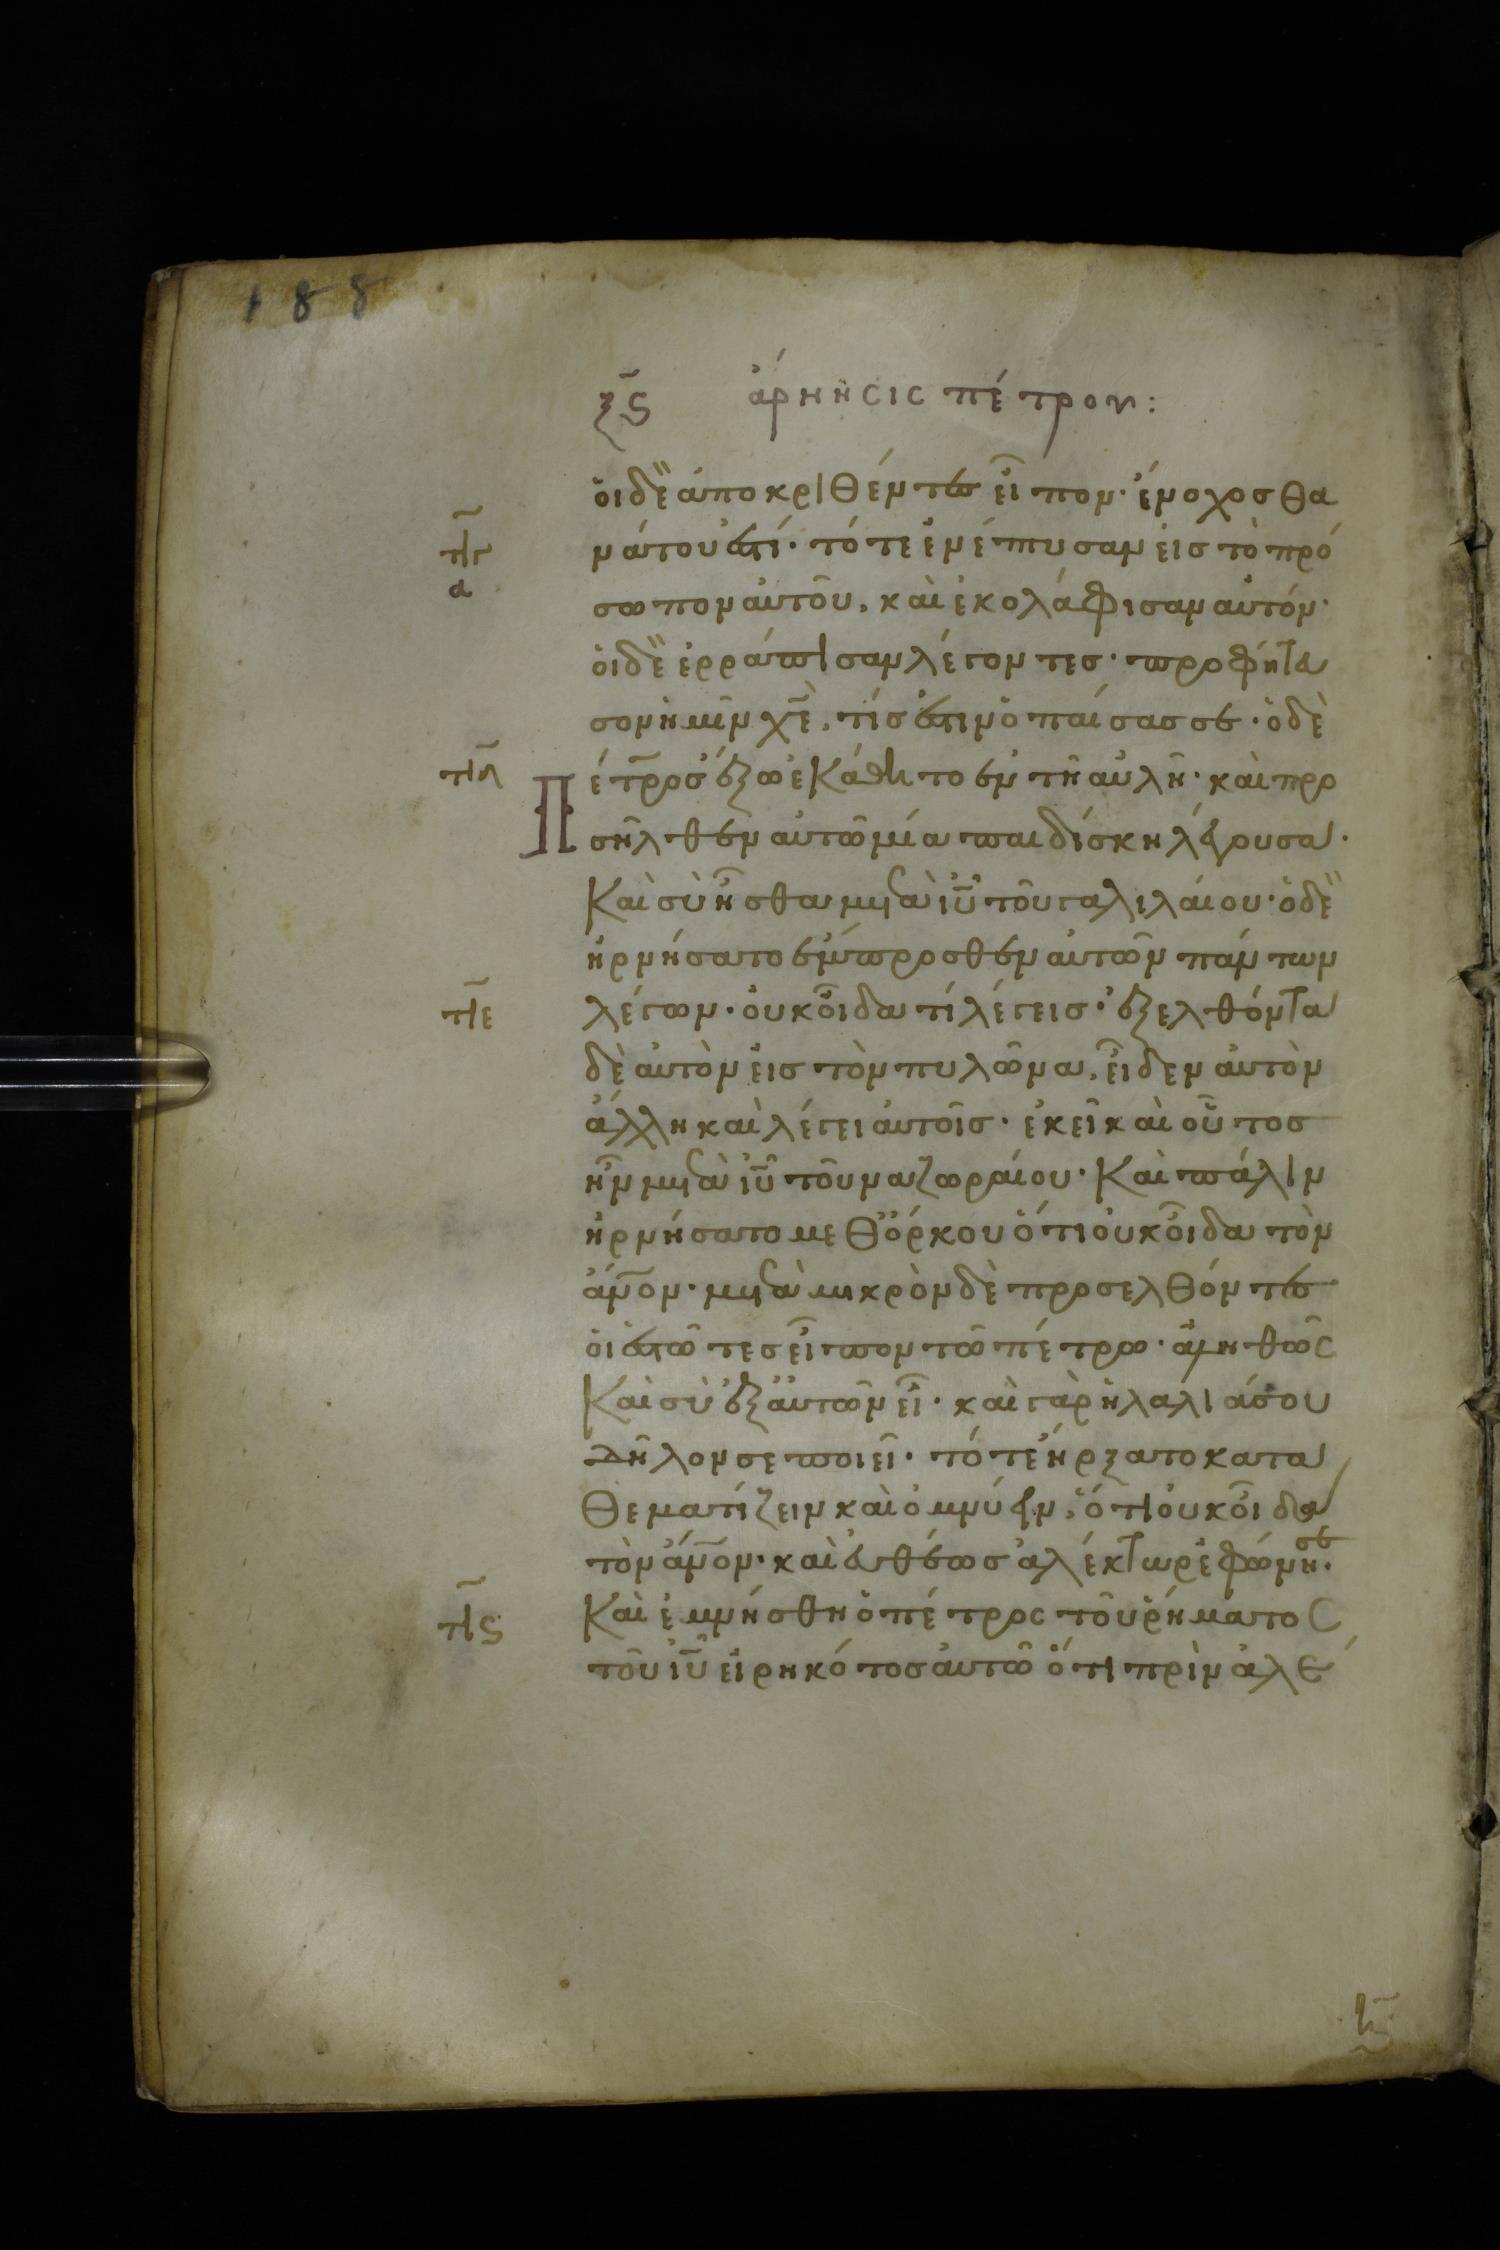 188
ξϛ̅ ἄρνησις πέτρου:
οἱ δὲ ἀποκριθέντες εἶπον· ἔνοχος θα
νάτου ἐστί· τότε ἐνέπτυσαν εἰς τὸ πρό
τιγ̅
α
σωπον αὐτοῦ, καὶ ἐκολάφισαν αὐτόν·
οἱ δὲ ἐρράπισαν λέγοντες· προφήτευ
σον ἡμῖν χε̅, τίς ἐστιν ὁ παίσας σε· ὁ δὲ
Πέτρος ἔξω ἐκάθητο ἐν τῆ αὐλῆ· καὶ προ
τιδ̅
σῆλθεν αὐτῶ μία παιδίσκη λέγουσα·
Καὶ σὺ ἦσθα μετὰ ιυ̅ τοῦ γαλιλαίου· ὁ δὲ
ἠρνήσατο ἔμπροσθεν αὐτῶν πάντων
λέγων· οὐκ οἶδα τί λέγεις· ἐξελθόντα
τιε̅
δὲ αὐτὸν εἰς τὸν πυλῶνα, εἶδεν αὐτὸν
ἄλλη καὶ λέγει αὐτοῖς· ἐκεῖ καὶ οὗτος
ἦν μετὰ ιυ̅ τοῦ ναζωραίου· Καὶ πάλιν
ἠρνήσατο μεθ' ὅρκου ὅτι οὐκ οἶδα τὸν
ἄνον· μετὰ μικρὸν δὲ προσελθόντες
οἱ ἑστῶτες εἶπον τῶ πέτρω· ἀληθῶς
Καὶ σὺ ἐξ αὐτῶν εἶ· καὶ γὰρ ἡ λαλιά σου
δῆλόν σε ποιεῖ· τότε ἤρξατο κατα
θεματίζειν καὶ ὀμνύειν, ὅτι οὐκ οἶδα
τὸν ἄνον· καὶ εὐθέως ἀλέκτωρ ἐφώνησε·
Καὶ ἐμνήσθη ὁ πέτρος τοῦ ῥήματος
τιϛ̅
τοῦ ιυ̅ εἰρηκότος αὐτῶ ὅτι πρὶν ἀλέ